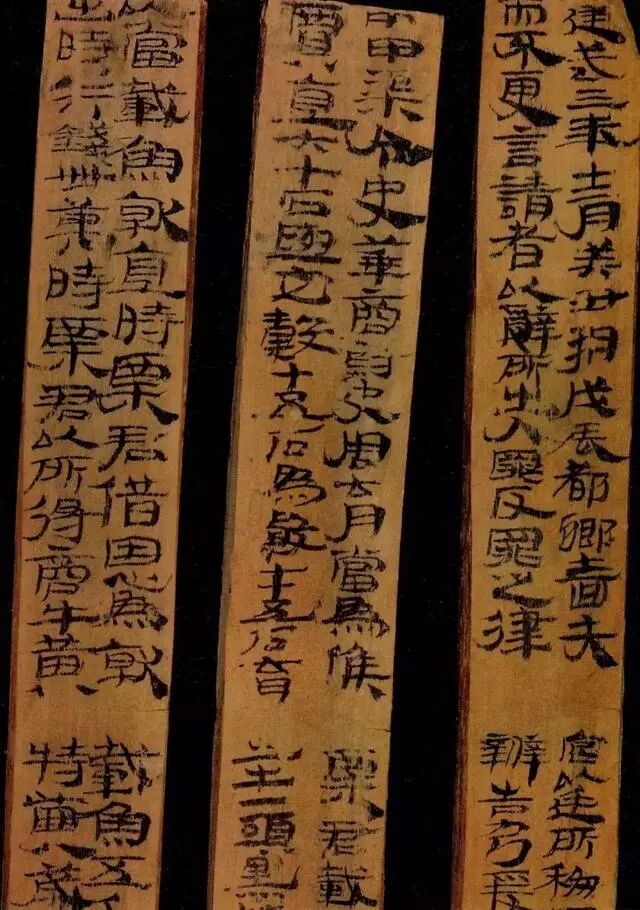 建武三年十二月癸丑朔戊辰都鄉嗇夫 宮以廷所移
而不更言請者以辭所出入罪反罪之律 辨告乃爰
甲渠令史華商尉史周育當為候 粟君載
賈直六十石與它穀十五石為穀七十五石育 出牛一頭黑
以當載魚就直時粟君借恩為就 載魚五
出時行錢卌萬時粟君以所得商牛黃 特齒八歲